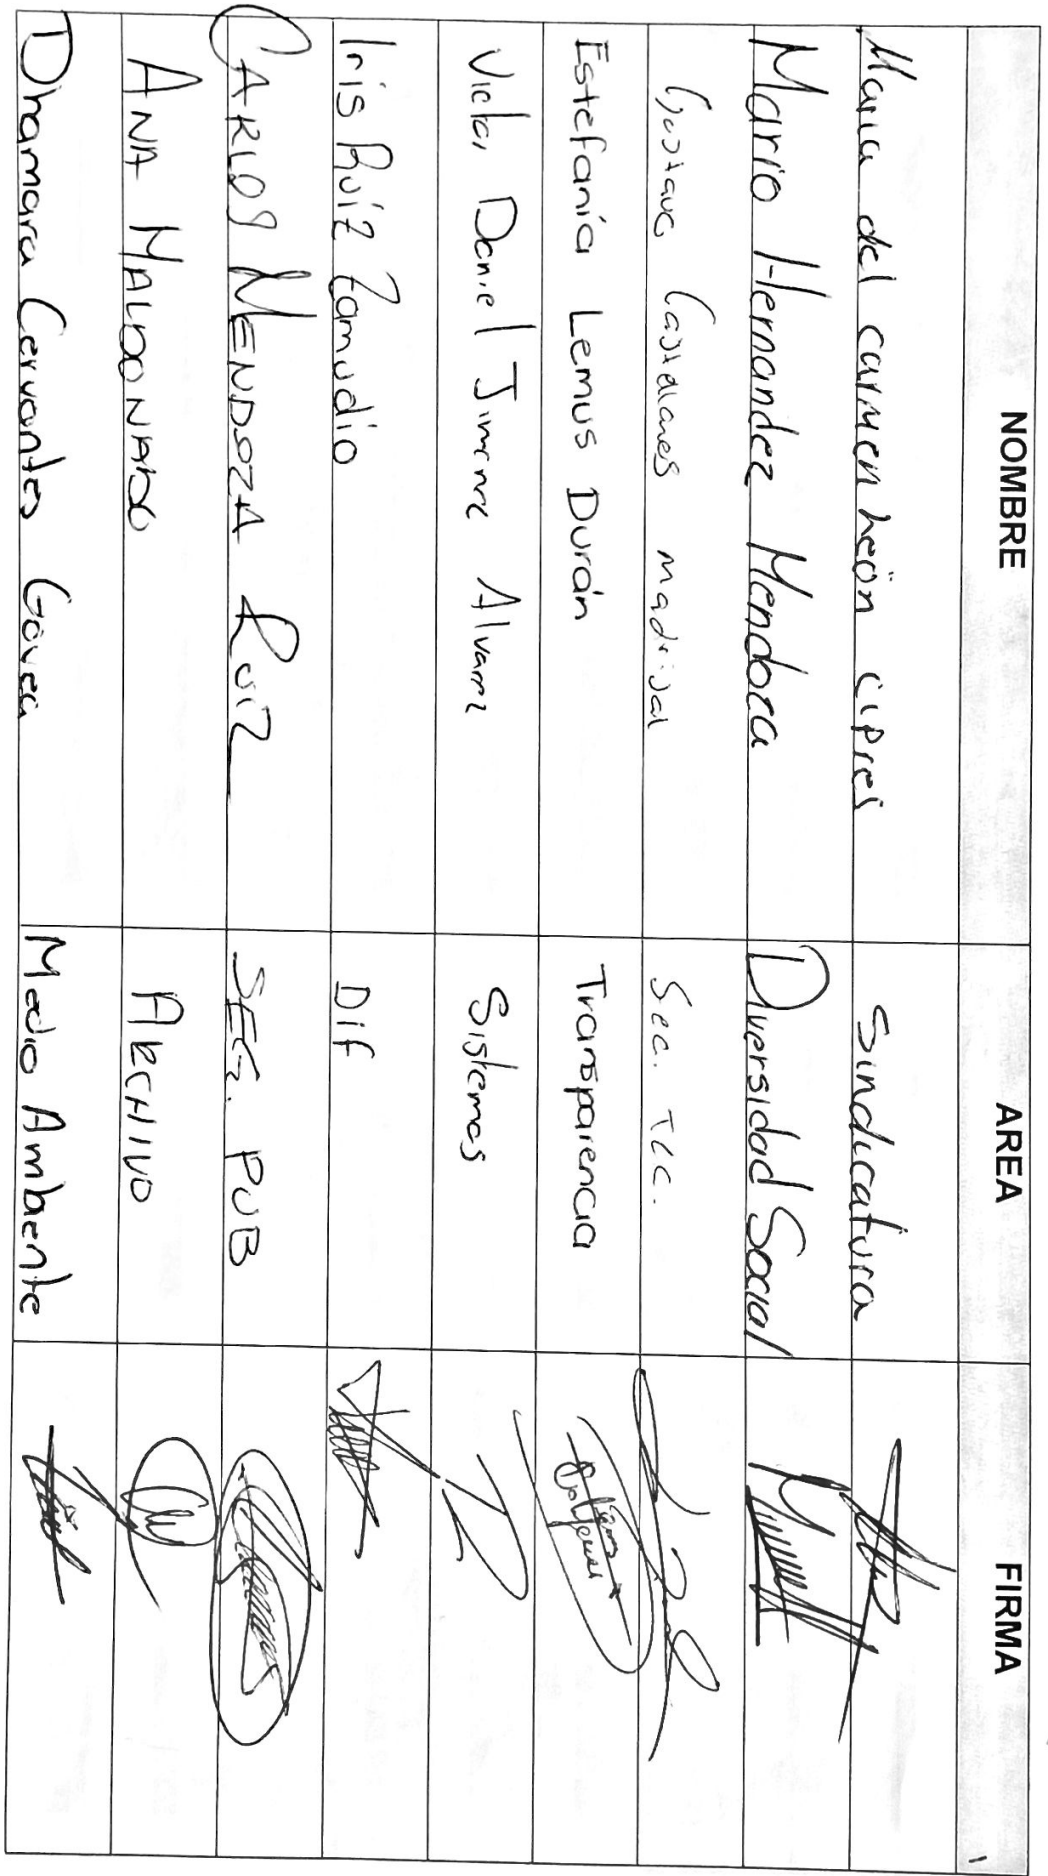 NOMBRE AREA FIRMA
Maria del carmen León cipres Sindicatura
Mario Hernandez Mendoza Diversidad Social
Gustavo Castellanes madrijal Sec. Tec.
Estefanía Lemus Durán Transparencia
Victor Daniel Jimenez Alvarez Sistemas
Iris Ruíz Zamudio Dif
CARLOS MENDOZA RUIZ SEG. PUB
ANA MALDONADO ARCHIVO
Dhamara Cervantes Govea Medio Ambiente